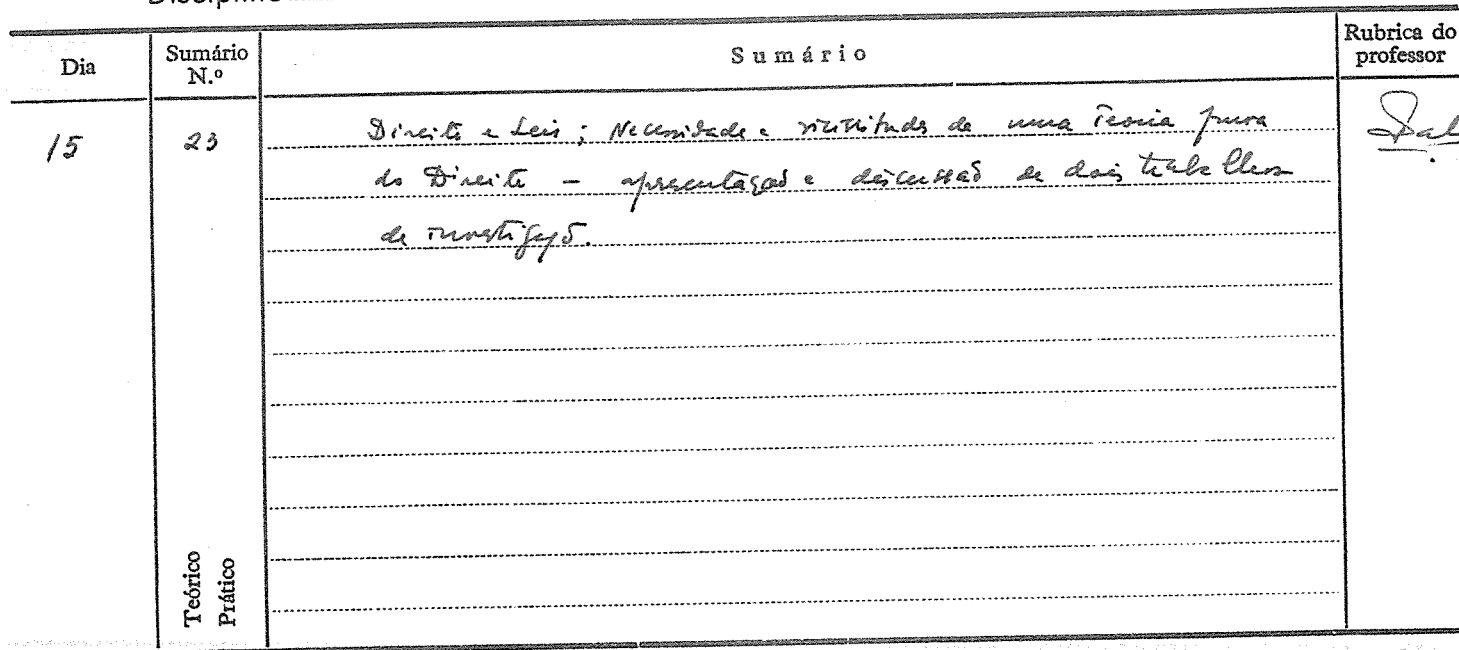 Dia
Sumário N.º
Sumário
Rubrica do professor
15
23
Direito e Leis; Necessidade e de uma Teoria pura
do Direito – apresentação e discussão de dois trabalhos
de investigação.
Teórico
Prático